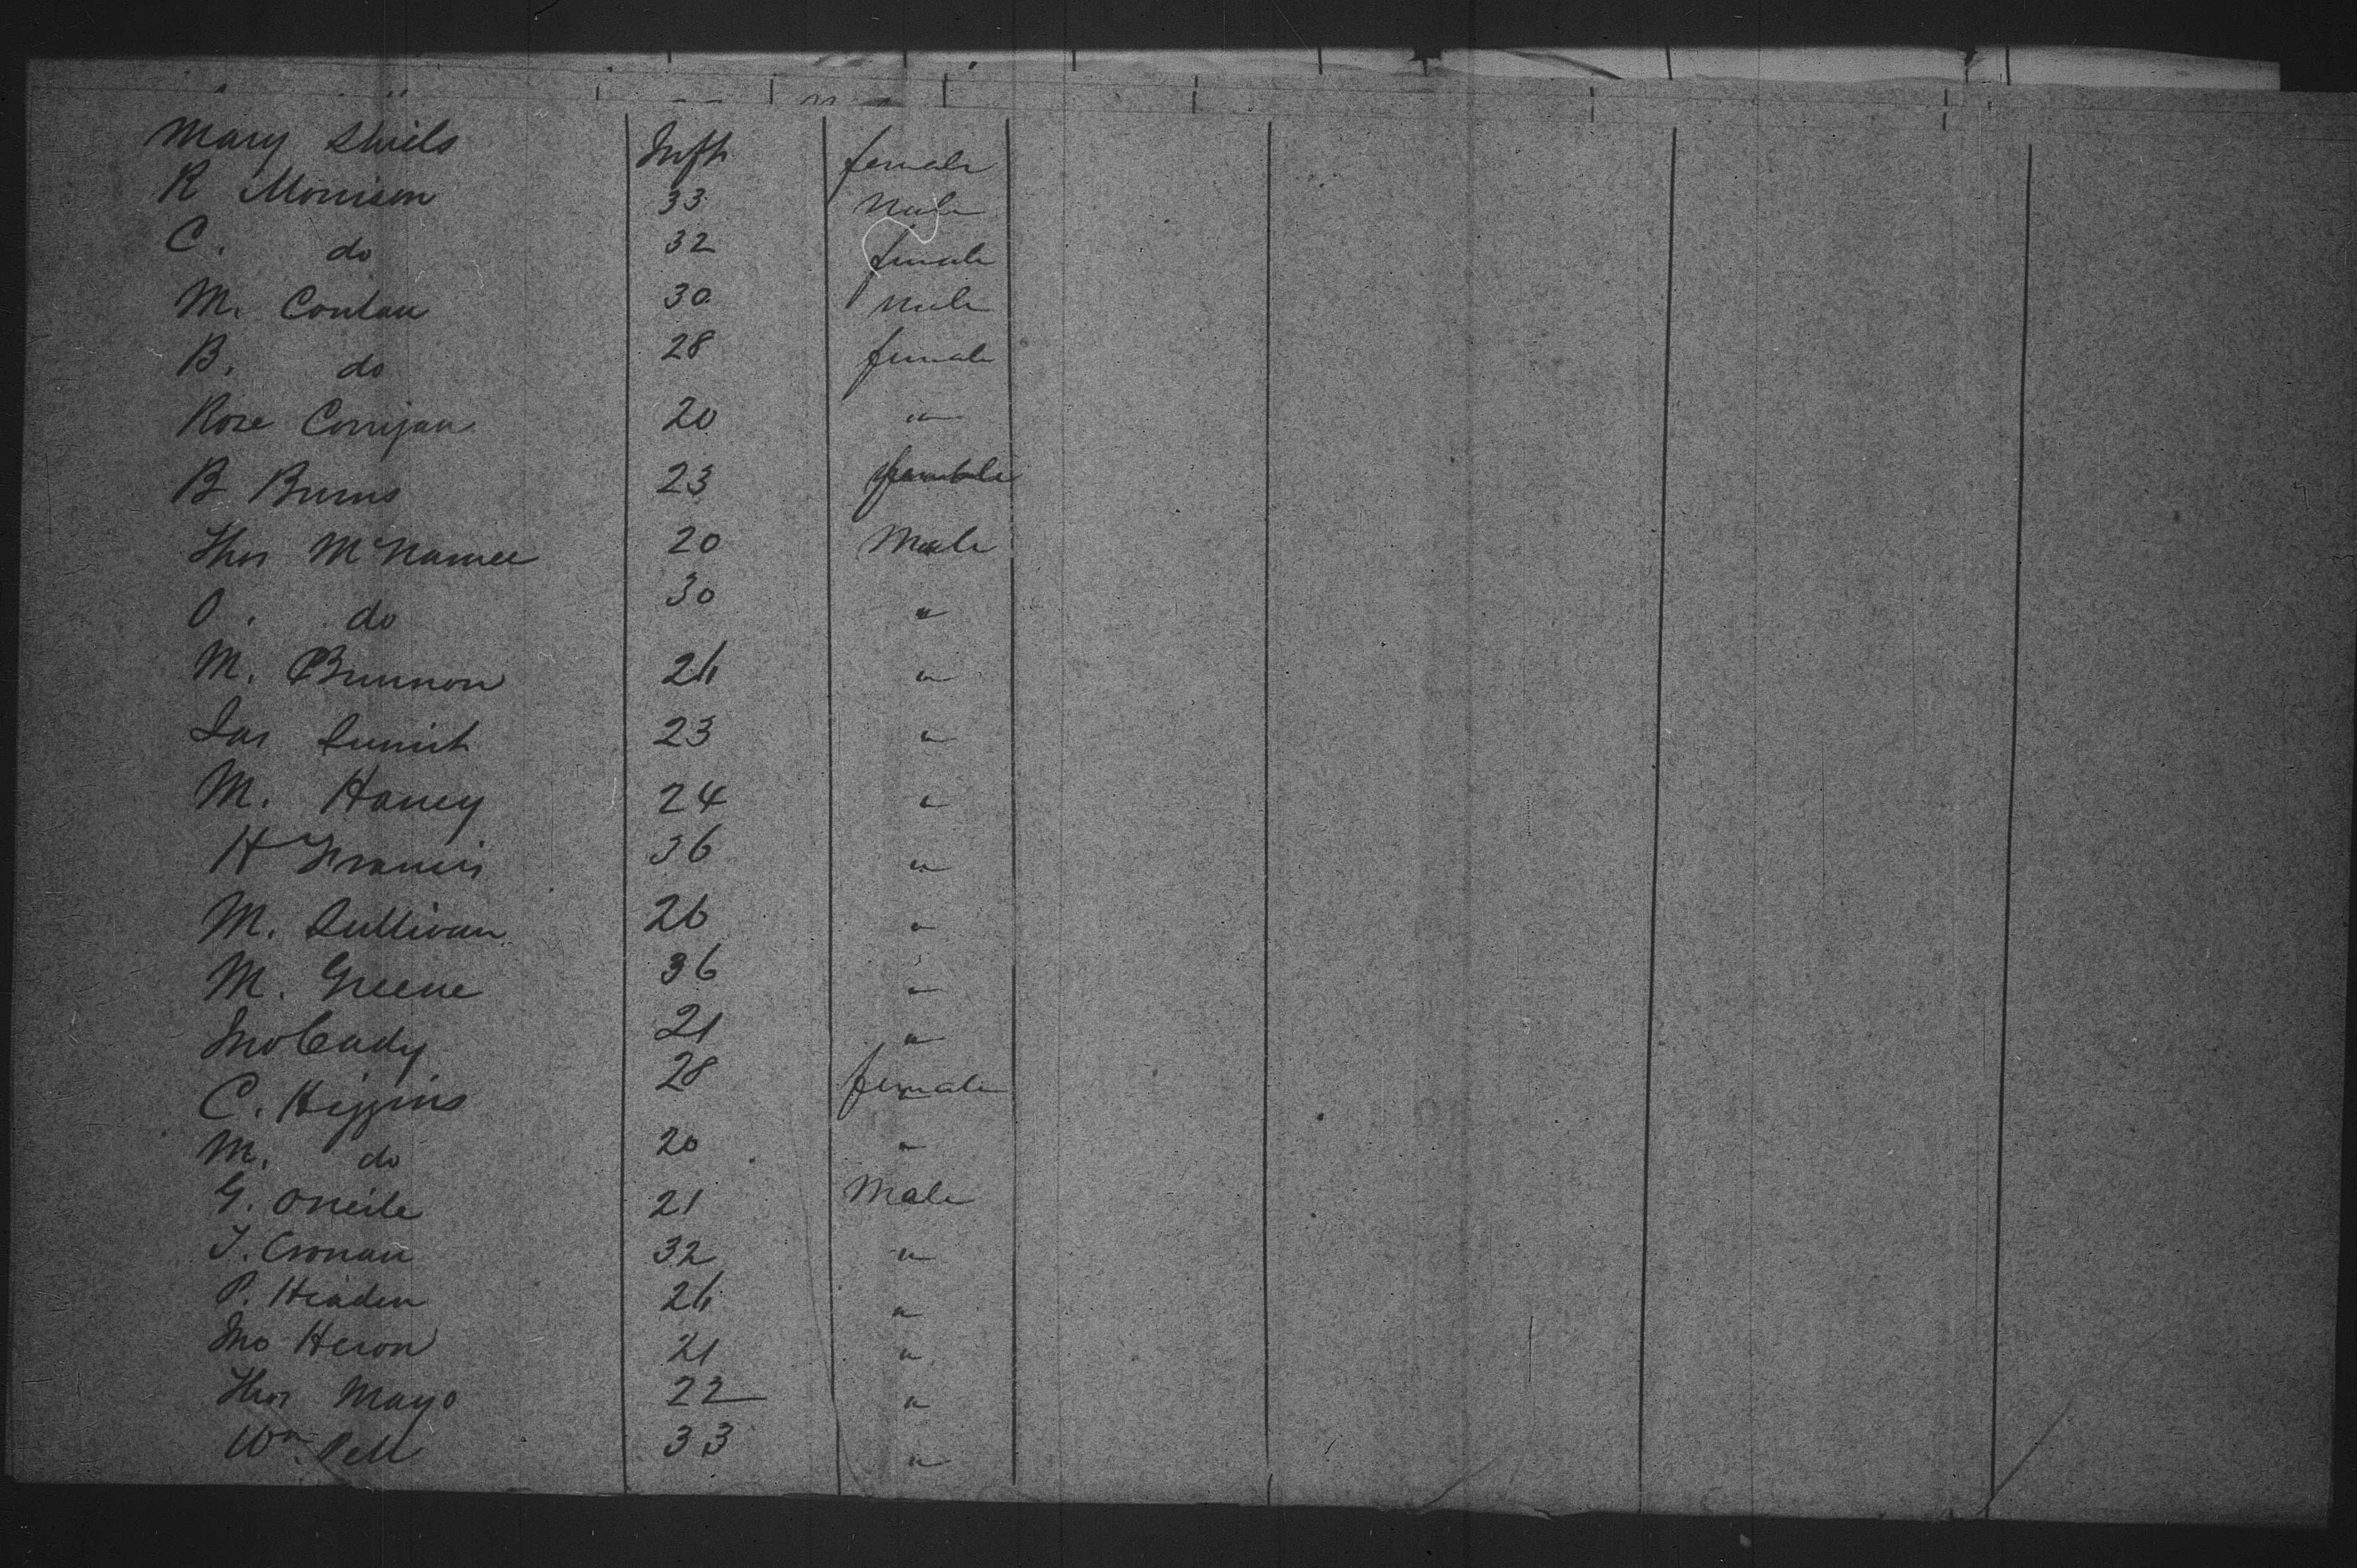 Mary Shiels Inft female
R Morrison 33 Male
C. do 32 female
M. Conlan 30 Male
B. do 28 female
Rose Corrigan 20 "
B Burns 23 female
Thos McNamee 20 Male
O. do 30 "
M. Brunnon 26 "
Jas Sumit 23 "
M. Haney 24 "
H Francis 36 "
M. Sullivan 26 "
M. Greene 36 "
Jno Cady 21 "
C. Higgins 28 female
M. do 20 "
G. ONeile 21 Male
J. Cronan 32 "
P. Headen 26 "
Jno Heron 21 "
Thos Mayo 22 "
Wm. Pell 33 "